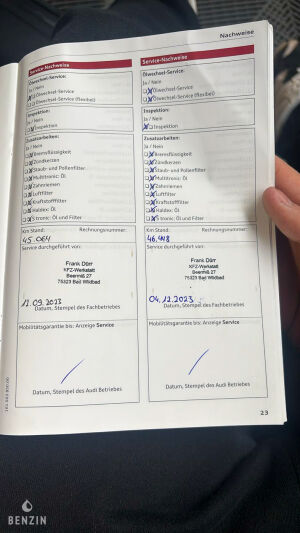 Nachweise
Service-Nachweise
Ölwechsel-Service:
Ja / Nein
Ölwechsel-Service
Ölwechsel-Service (flexibel)
Inspektion:
Ja / Nein
Inspektion
Zusatzarbeiten:
Ja / Nein
Bremsflüssigkeit
Zündkerzen
Staub- und Pollenfilter
Multitronic: Öl
Zahnriemen
Luftfilter
Kraftstofffilter
Haldex: Öl
S tronic: Öl und Filter
Km Stand: Rechnungsnummer:
45.064
Service durchgeführt von:
Frank Dürr
KFZ-Werkstatt
75323 Bad Wildbad
12.09.2023
Datum, Stempel des Fachbetriebes
Mobilitätsgarantie bis: Anzeige Service
Datum, Stempel des Audi Betriebes
Service-Nachweise
Ölwechsel-Service:
Ja / Nein
Ölwechsel-Service
Ölwechsel-Service (flexibel)
Inspektion:
Ja / Nein
Inspektion
Zusatzarbeiten:
Ja / Nein
Bremsflüssigkeit
Zündkerzen
Staub- und Pollenfilter
Multitronic: Öl
Zahnriemen
Luftfilter
Kraftstofffilter
Haldex: Öl
S tronic: Öl und Filter
Km Stand: Rechnungsnummer:
Service durchgeführt von:
Frank Dürr
KFZ-Werkstatt
75323 Bad Wildbad
04.12.2023
Datum, Stempel des Fachbetriebes
Mobilitätsgarantie bis: Anzeige Service
Datum, Stempel des Audi Betriebes
23
BENZIN